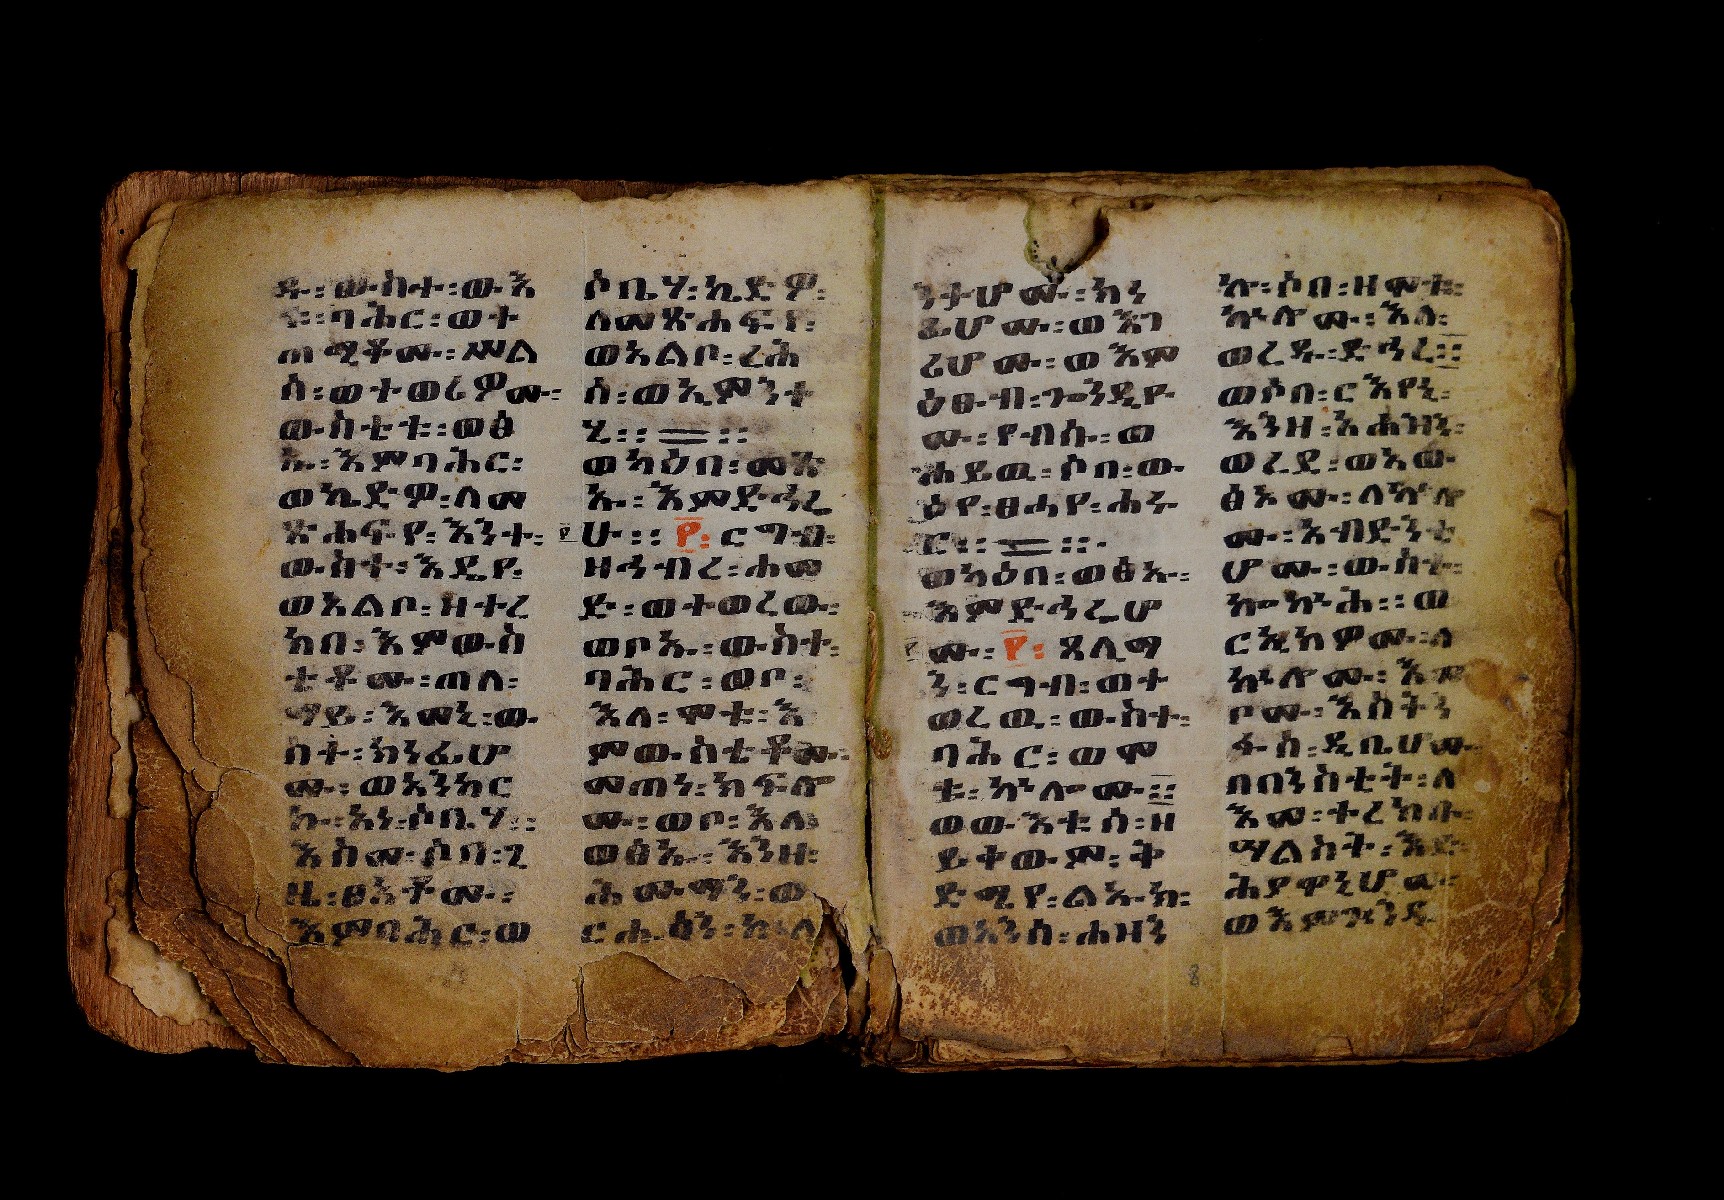 ዱ፡ ውስተ፡ ውእ
ቱ፡ ባሕር፡ ወተ
ጠሚቆሙ፡ ሠል
ሰ፡ ወተወሪዎሙ፡
ውስቴቱ፡ ወፅ
ኡ፡ እምባሕር፡
ወኪድዎ፡ ለመ
ጽሐፍየ፡ እንተ፡
ውስተ፡ እዴየ፡
ወአልቦ፡ ዘተረ
ክበ፡ እምውስ
ቴቶሙ፡ ጠለ፡
ማይ፡ እመኒ፡ ው
ስተ፡ ክንፊሆ
ሙ፡ ወአንከር
ኩ፡ አነ፡ ሶቤሃ፡
እስመ፡ ሶበ፡ ጊ
ዜ፡ ፀአቶሙ፡
እምባሕር፡ ወ
ሶቤሃ፡ ኪድዎ፡
ለመጽሐፍየ፡
ወአልቦ፡ ረሕ
ሰ፡ ወኢምንተ
ሂ።
ወካዕበ፡ መጽ
ኡ፡ እምድኅሬ
ሁ። ፲፡ ርግብ፡
ዘኅብረ፡ ሐመ
ድ፡ ወተወረው፡
ወቦኡ፡ ውስተ፡
ባሕር፡ ወቦ፡
እለ፡ ሞቱ፡ እ
ምውስቴቶሙ፡
መጠነ፡ ክፍሎ
ሙ፡ ወቦ፡ እለ
ወፅኡ፡ እንዘ፡
ሕሙማን፡ ወ
ርሑፅን፡ ኵለ
ንታሆሙ፡ ክን
ፊሆሙ፡ ወእገ
ሪሆሙ፡ ወእም
ዕፀብ፡ ጐንዲዮ
ሙ፡ የብሱ፡ ወ
ሐይዉ፡ ሶበ፡ ው
ዕየ፡ ፀሓየ፡ ሐሩ
ር።
ወካዕበ፡ ወፅኡ፡
እምድኅሬሆ
ሙ፡ ፲፡ ጸሊማ
ን፡ ርግብ፡ ወተ
ወረዉ፡ ውስተ፡
ባሕር፡ ወሞ
ቱ፡ ኵሎሙ።
ወውእቱሰ፡ ዘ
ይተውም፡ ት
ድሚየ፡ ልኡክ፡
ወአንሰ፡ ሐዘን
ኩ፡ ሶበ፡ ዘሞቱ፡
ኵሎሙ፡ እለ፡
ወረዱ፡ ድኅረ።
ወሶበ፡ ርእየኒ፡
እንዘ፡ አሐዝን፡
ወረደ፡ ወአው
ፅአሙ፡ ለኵሎ
ሙ፡ አብድንቲ
ሆሙ፡ ውስተ፡
ኰኵሕ። ወ
ርኢክዎሙ፡ ለ
ኵሎሙ፡ እም
ቦሙ፡ እስትን
ፋስ፡ ዲቤሆሙ፡
በበንስቲት፡ ለ
እመ፡ ተረክበ፡
ማልስት፡ እድ
ሕያዋኒሆሙ፡
ወእምጐንዱ
8